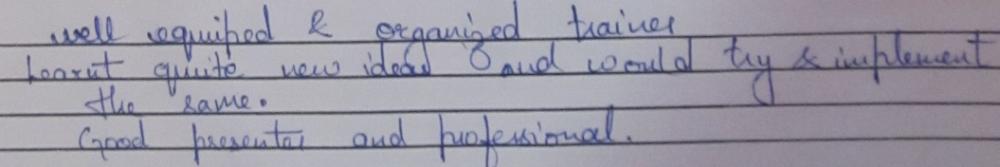 well equiped & organized trainer
Learnt quite new ideas & and would try & implement
the same.
Good presentor and professional.